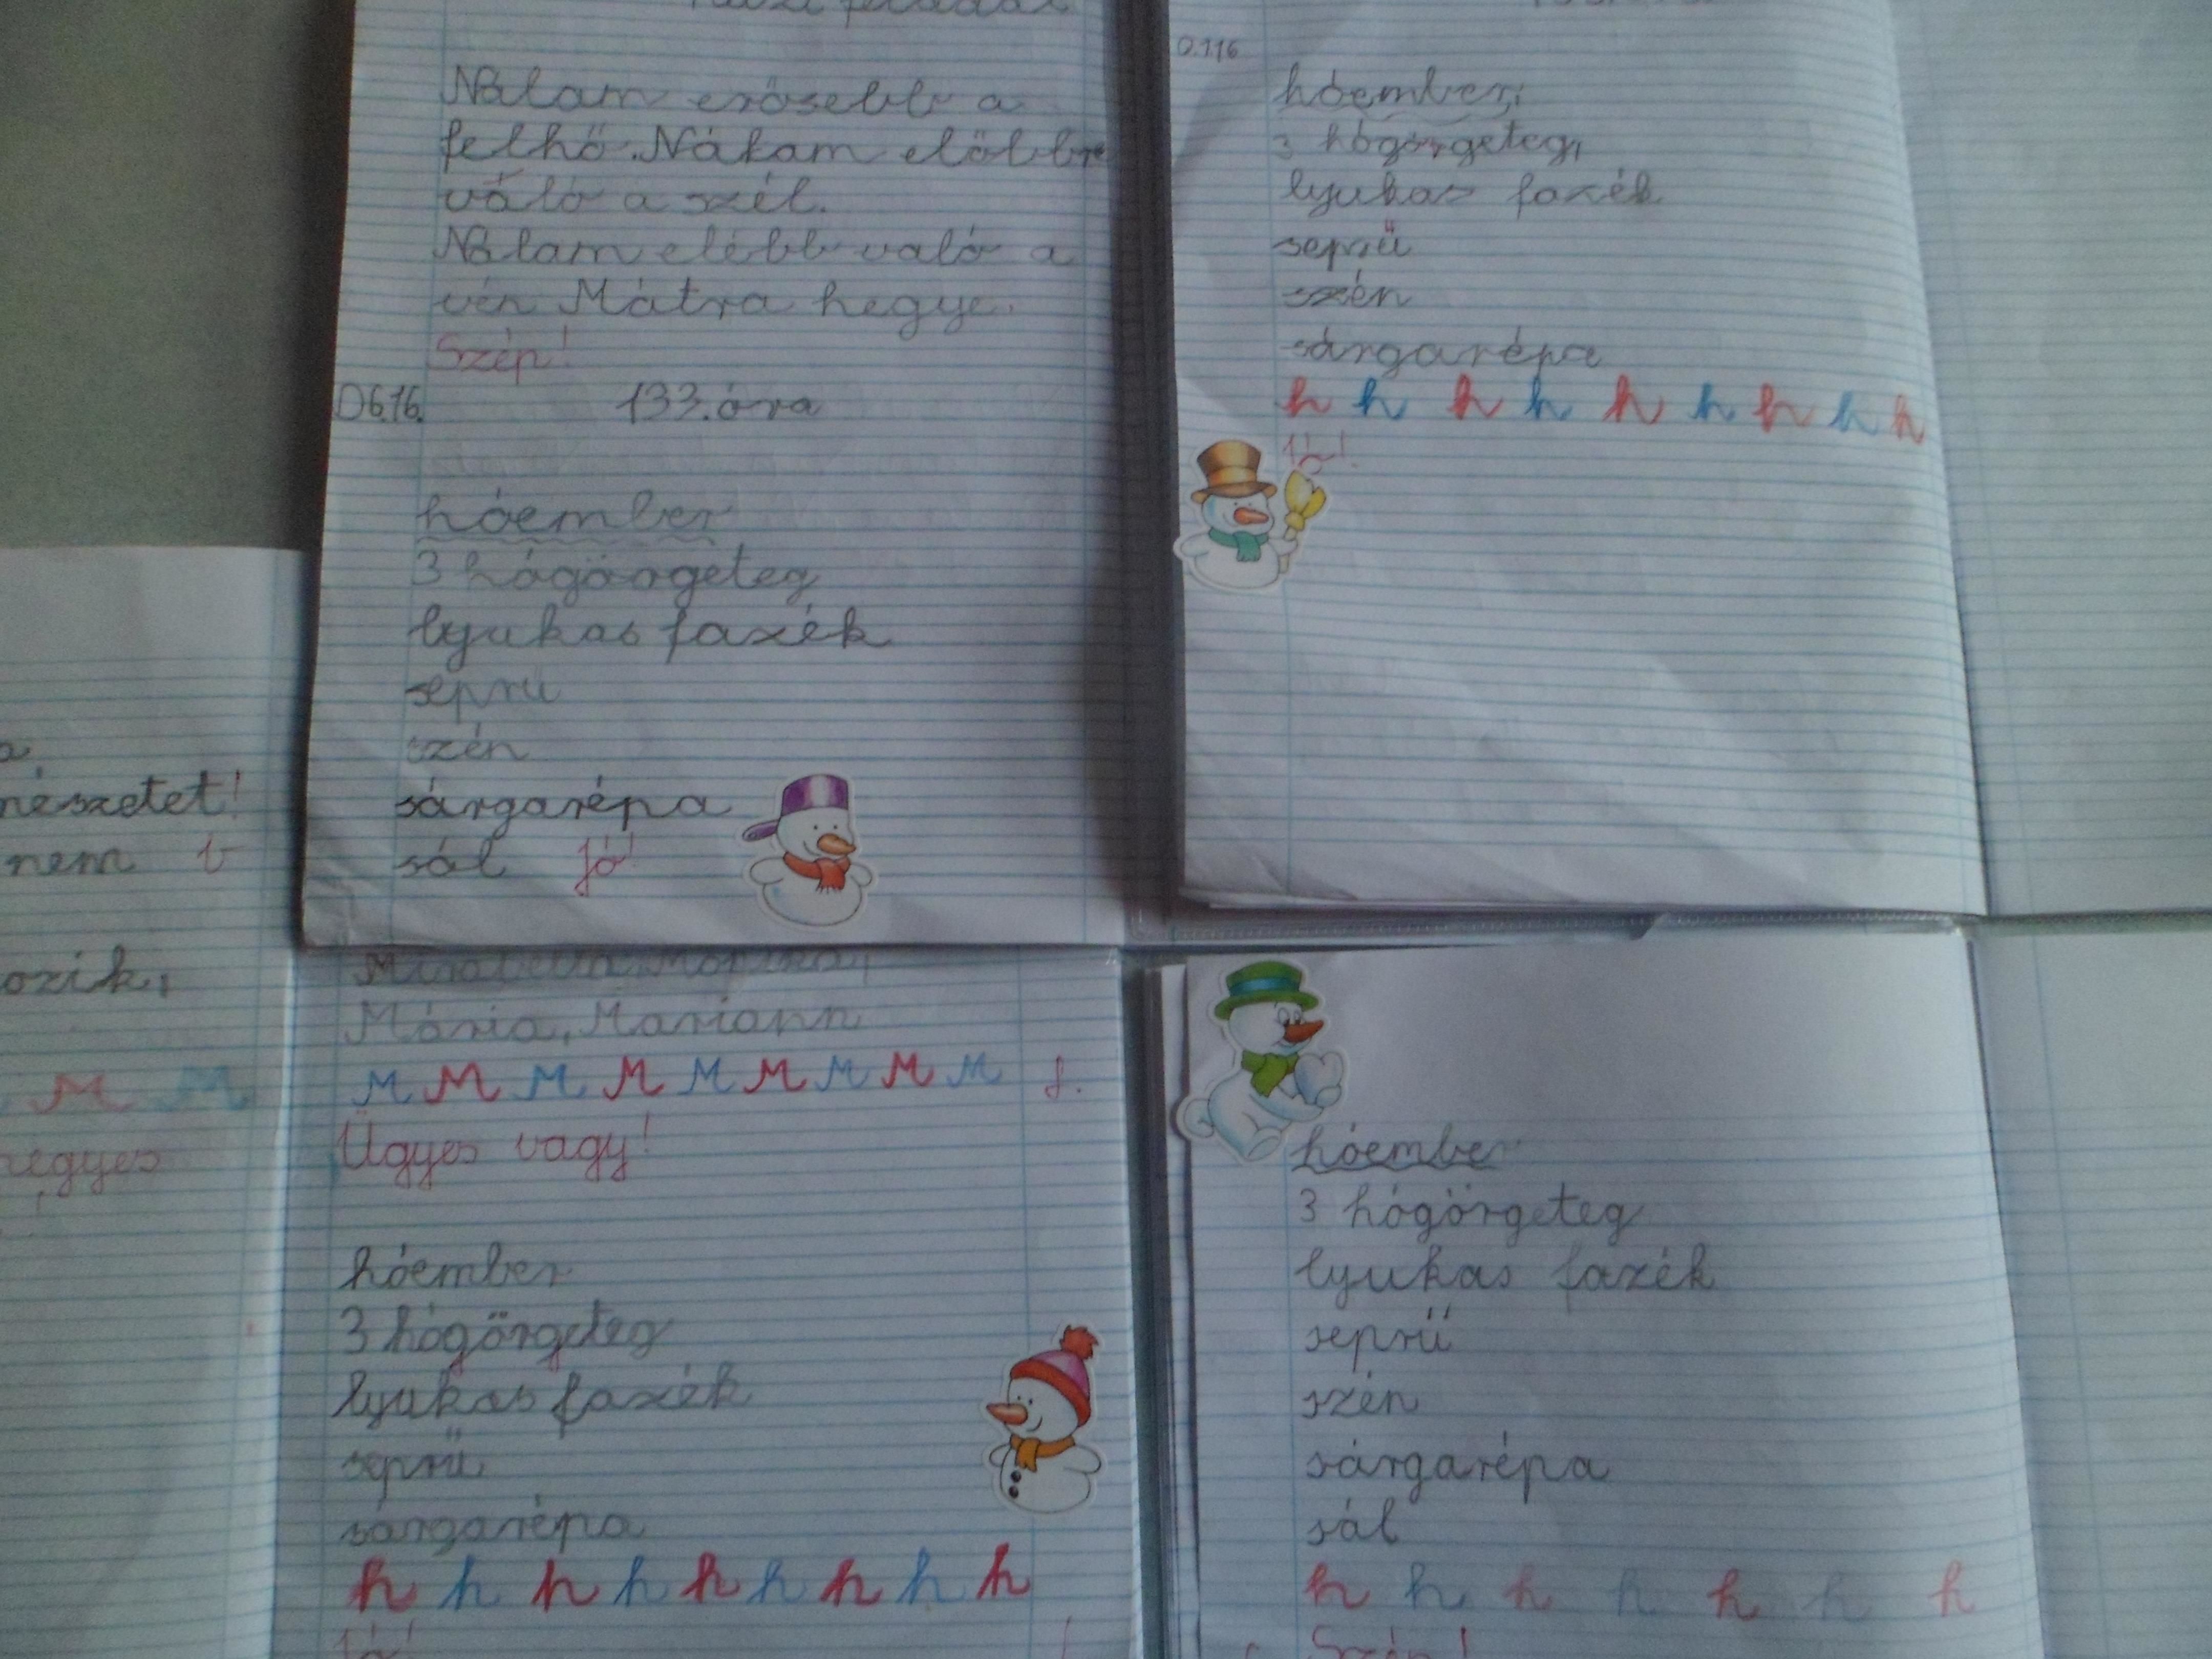 Nálam erősebb a
felhő. Nákam előbbre
váló a szél.
Nálam elébb való a
vén Mátra hegye.
Szép!
06.16. 133. óra
hóember
3 hógörgeteg
lyukas fazék
sepru
szén
sárgarépa
sál Jó!
0.116
hóember,
3 hógörgeteg,
lyukas fazék
seprű
szén
sárgarépa
h h h h h h h h h
Jó!
nem
M M
Mária, Mariann
M M M M M M M M M
Ügyes vagy!
hóember
3 hógörgeteg
lyukas fazék
seprű
sárgarépa
h h h h h h h h h
Jó!
hóember
3 hógörgeteg
lyukas fazék
seprű
szén
sárgarépa
sál
h h h h h h h
Szép!